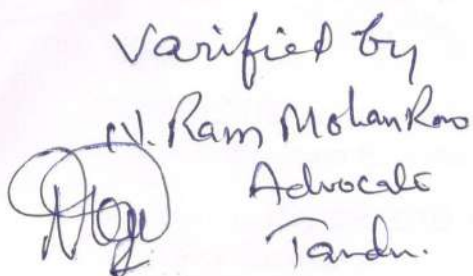 Varified by
N. Ram Mohan Rao
Advocate
Tandur.